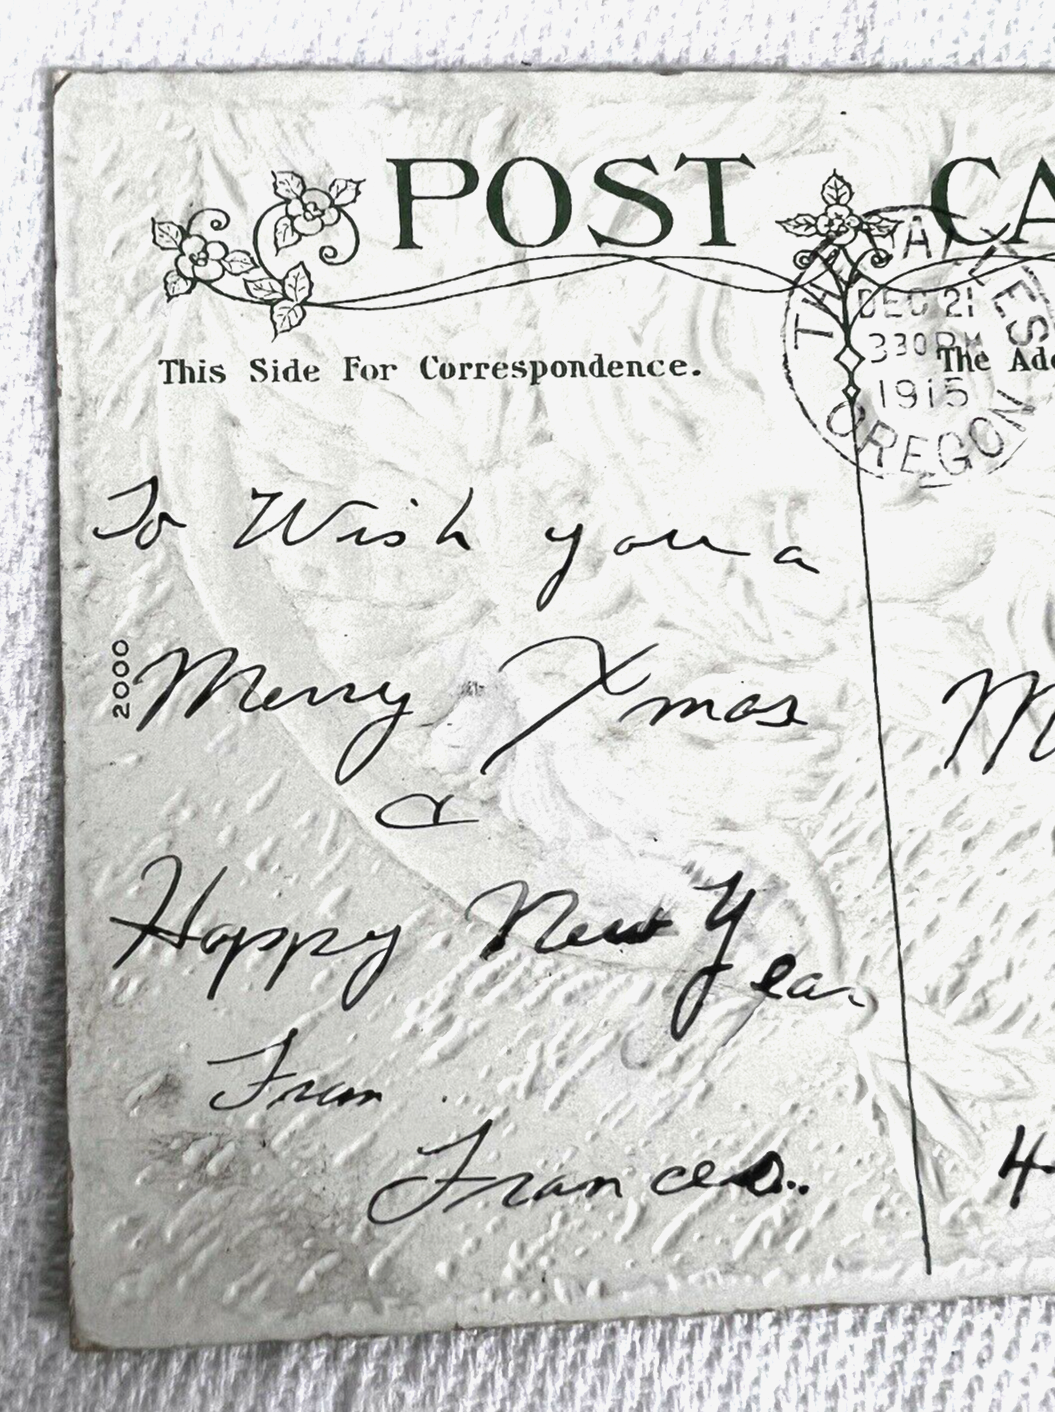 POST CA
THE DALLES
DEC 21
330 PM
1915
OREGON
This Side For Correspondence.
The Add
To Wish you a
2000
Merry Xmas
&
Happy New Year
From
Frances..
M
4